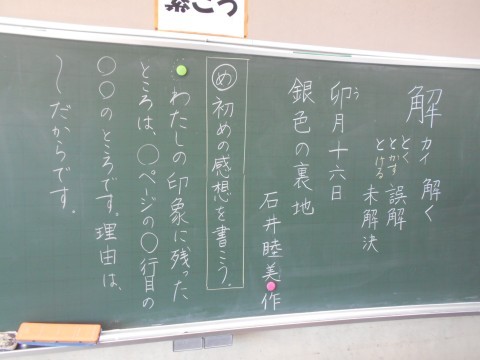 解 カイ 解く
とく
とかす 誤解
とける 未解決
卯月十六日
う
銀色の裏地
石井睦美 作
め 初めの感想を書こう。
わたしの印象に残った
ところは、○ページの○行目の
○○のところです。理由は、
〜だからです。